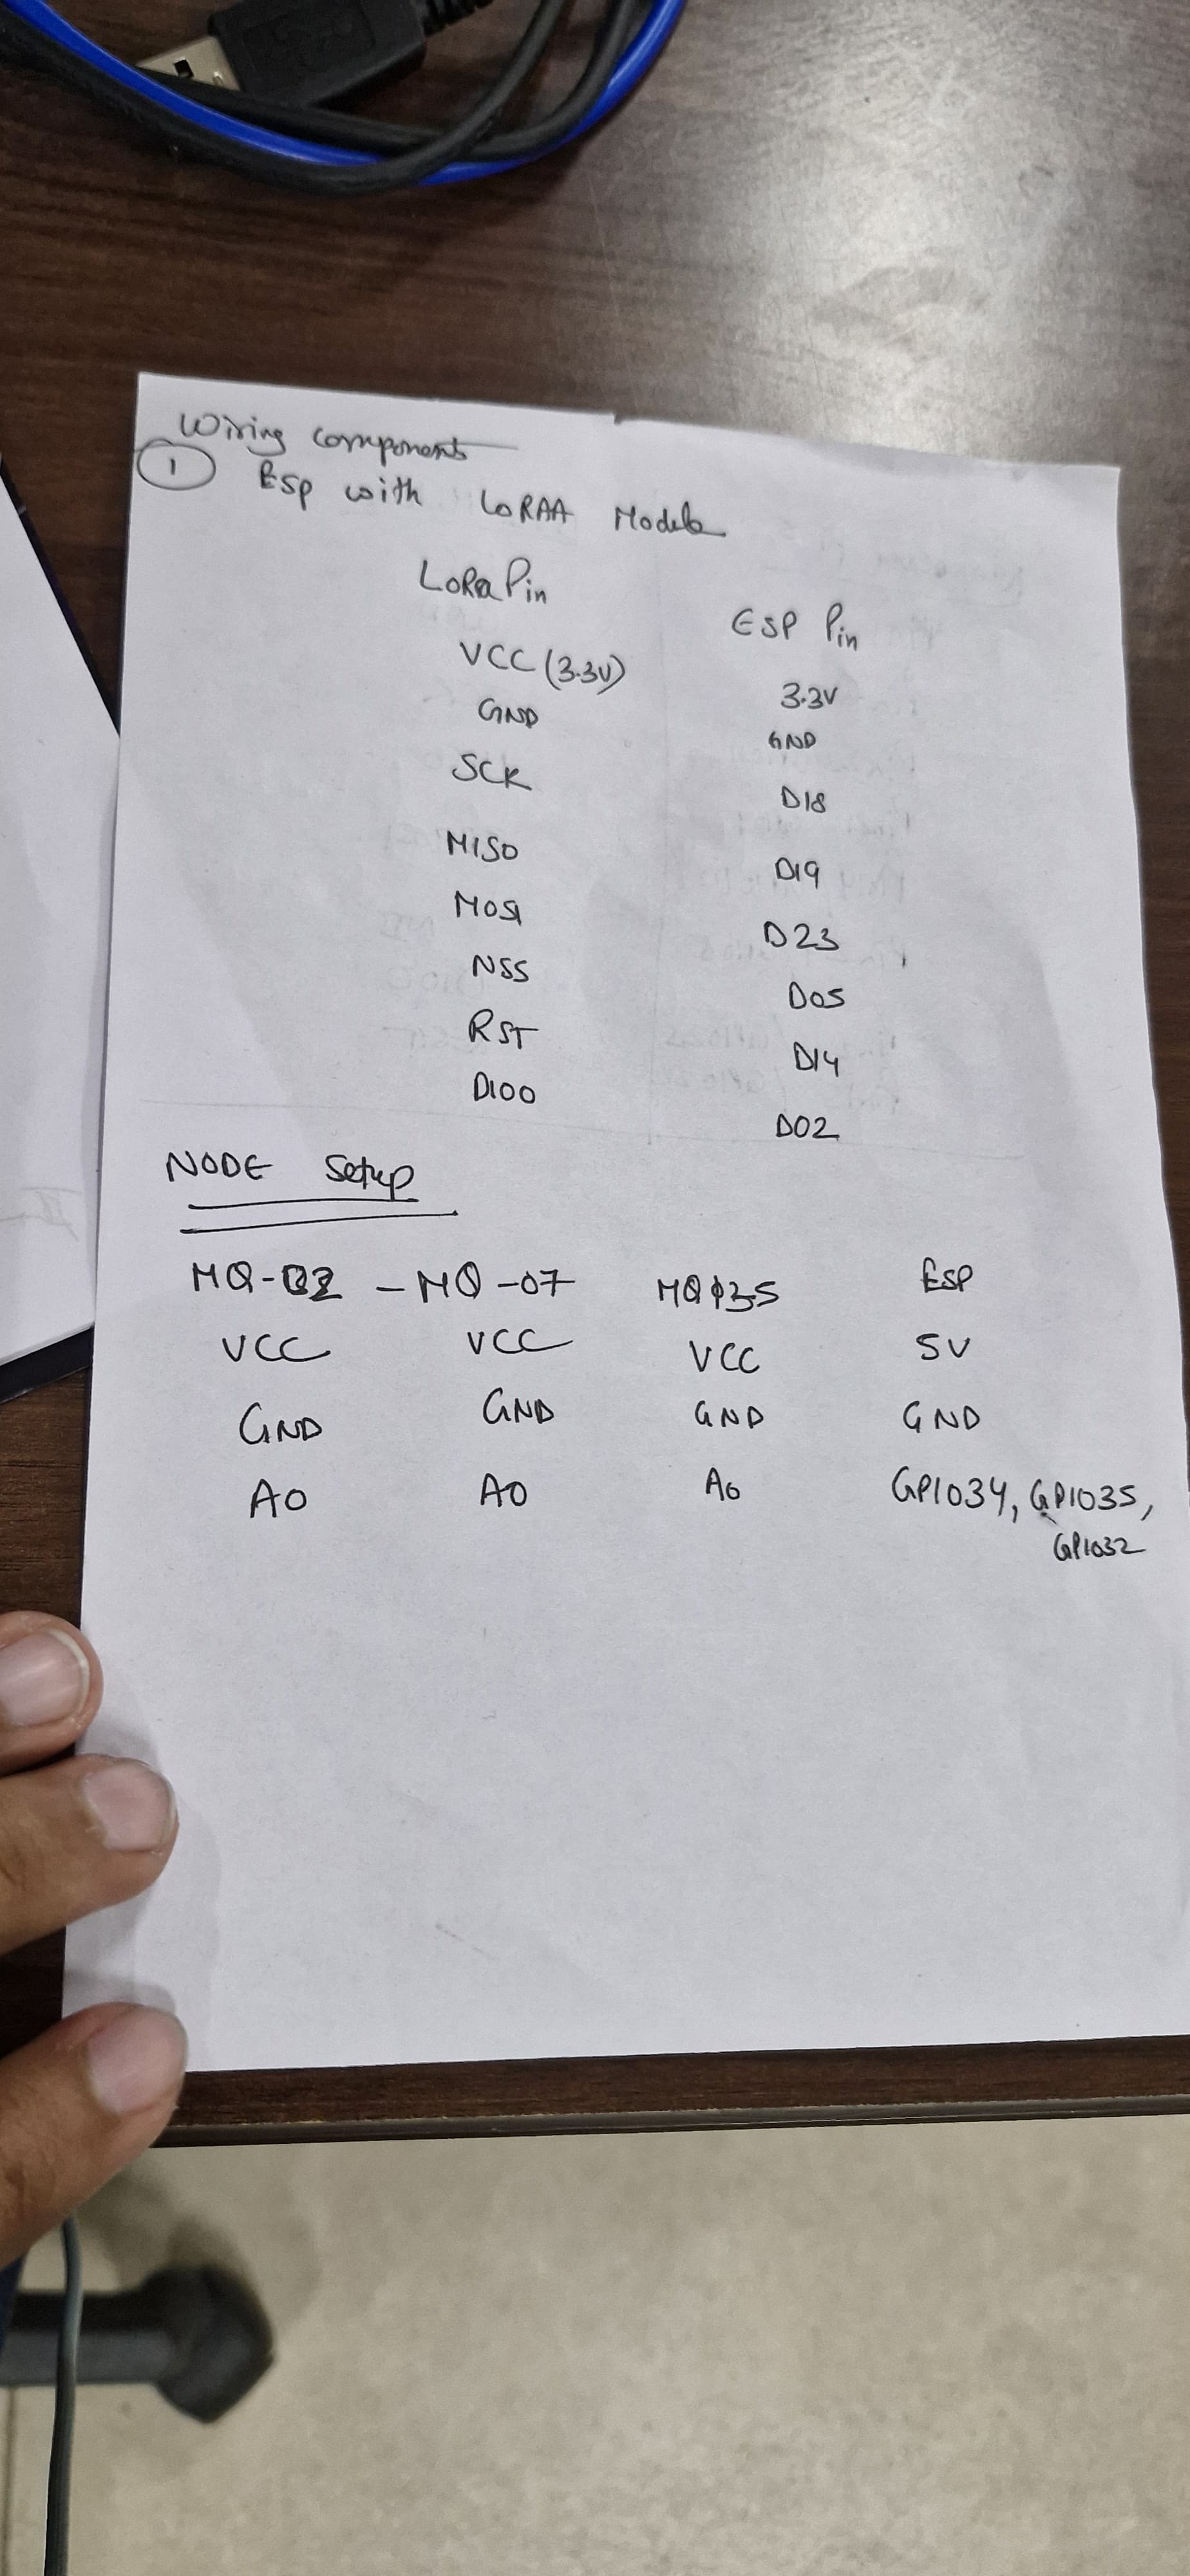 Wiring components
1 Esp with LoRAA Module
LoRa Pin ESP Pin
VCC (3.3V) 3.3V
GND GND
SCK D18
MISO D19
MOSI D23
NSS D05
RST D14
DIO0 D02
NODE Setup
MQ-02 - MQ-07 MQ135 ESP
VCC VCC VCC 5V
GND GND GND GND
A0 A0 A0 GPIO34, GPIO35,
GPIO32